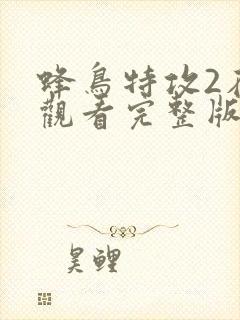 蜂鳥特攻2
觀看完整版
昊鲤